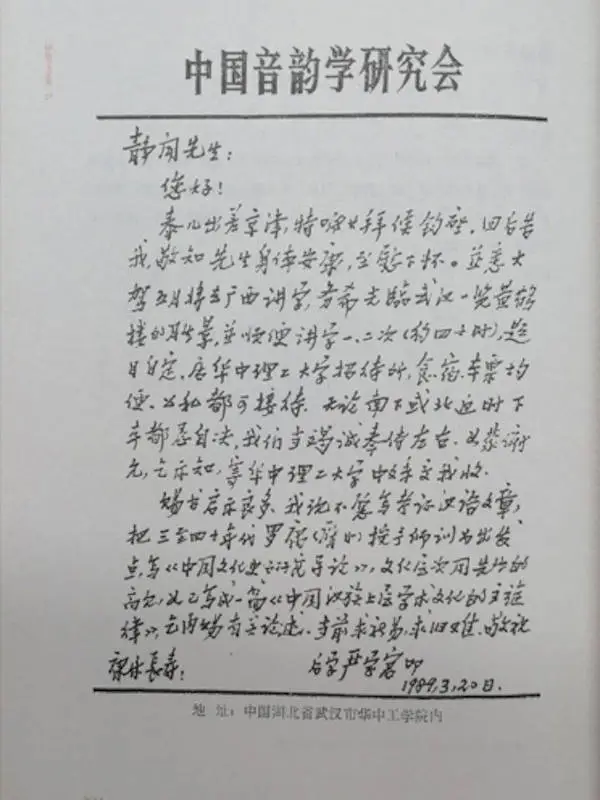 中国音韵学研究会
静闻先生:
您好!
泰儿出差京津,特嘱其拜侯钧座,回舍告
我,敬知先生身体安康,至慰下怀。并悉大
驾五月将去广西讲学,务希光临武汉一览黄鹤
楼的胜景,并顺便讲学一、二次(约四小时),题
目自定,居华中理工大学招待所,食、宿、车票均
便、公私都可接待。无论南下或北返时下
车都启自决,我们当竭诚奉侍左右。如蒙谢
允,乞示知,寄华中理工大学中文系交我收。
赐书启示良多,我决不愿写考证汉语文章,
把三至四十年代罗 授予师训为出发
点,写《中国文化史研究导论》,文化层次用先生的
高见,又已写成一篇《中国汉族上层学术文化的主旋
律》,当前求新易,求旧难。敬祝
康乐长寿!
后学严学宭叩
1989,3,20日.
地 址:中国湖北省武汉市华中工学院内